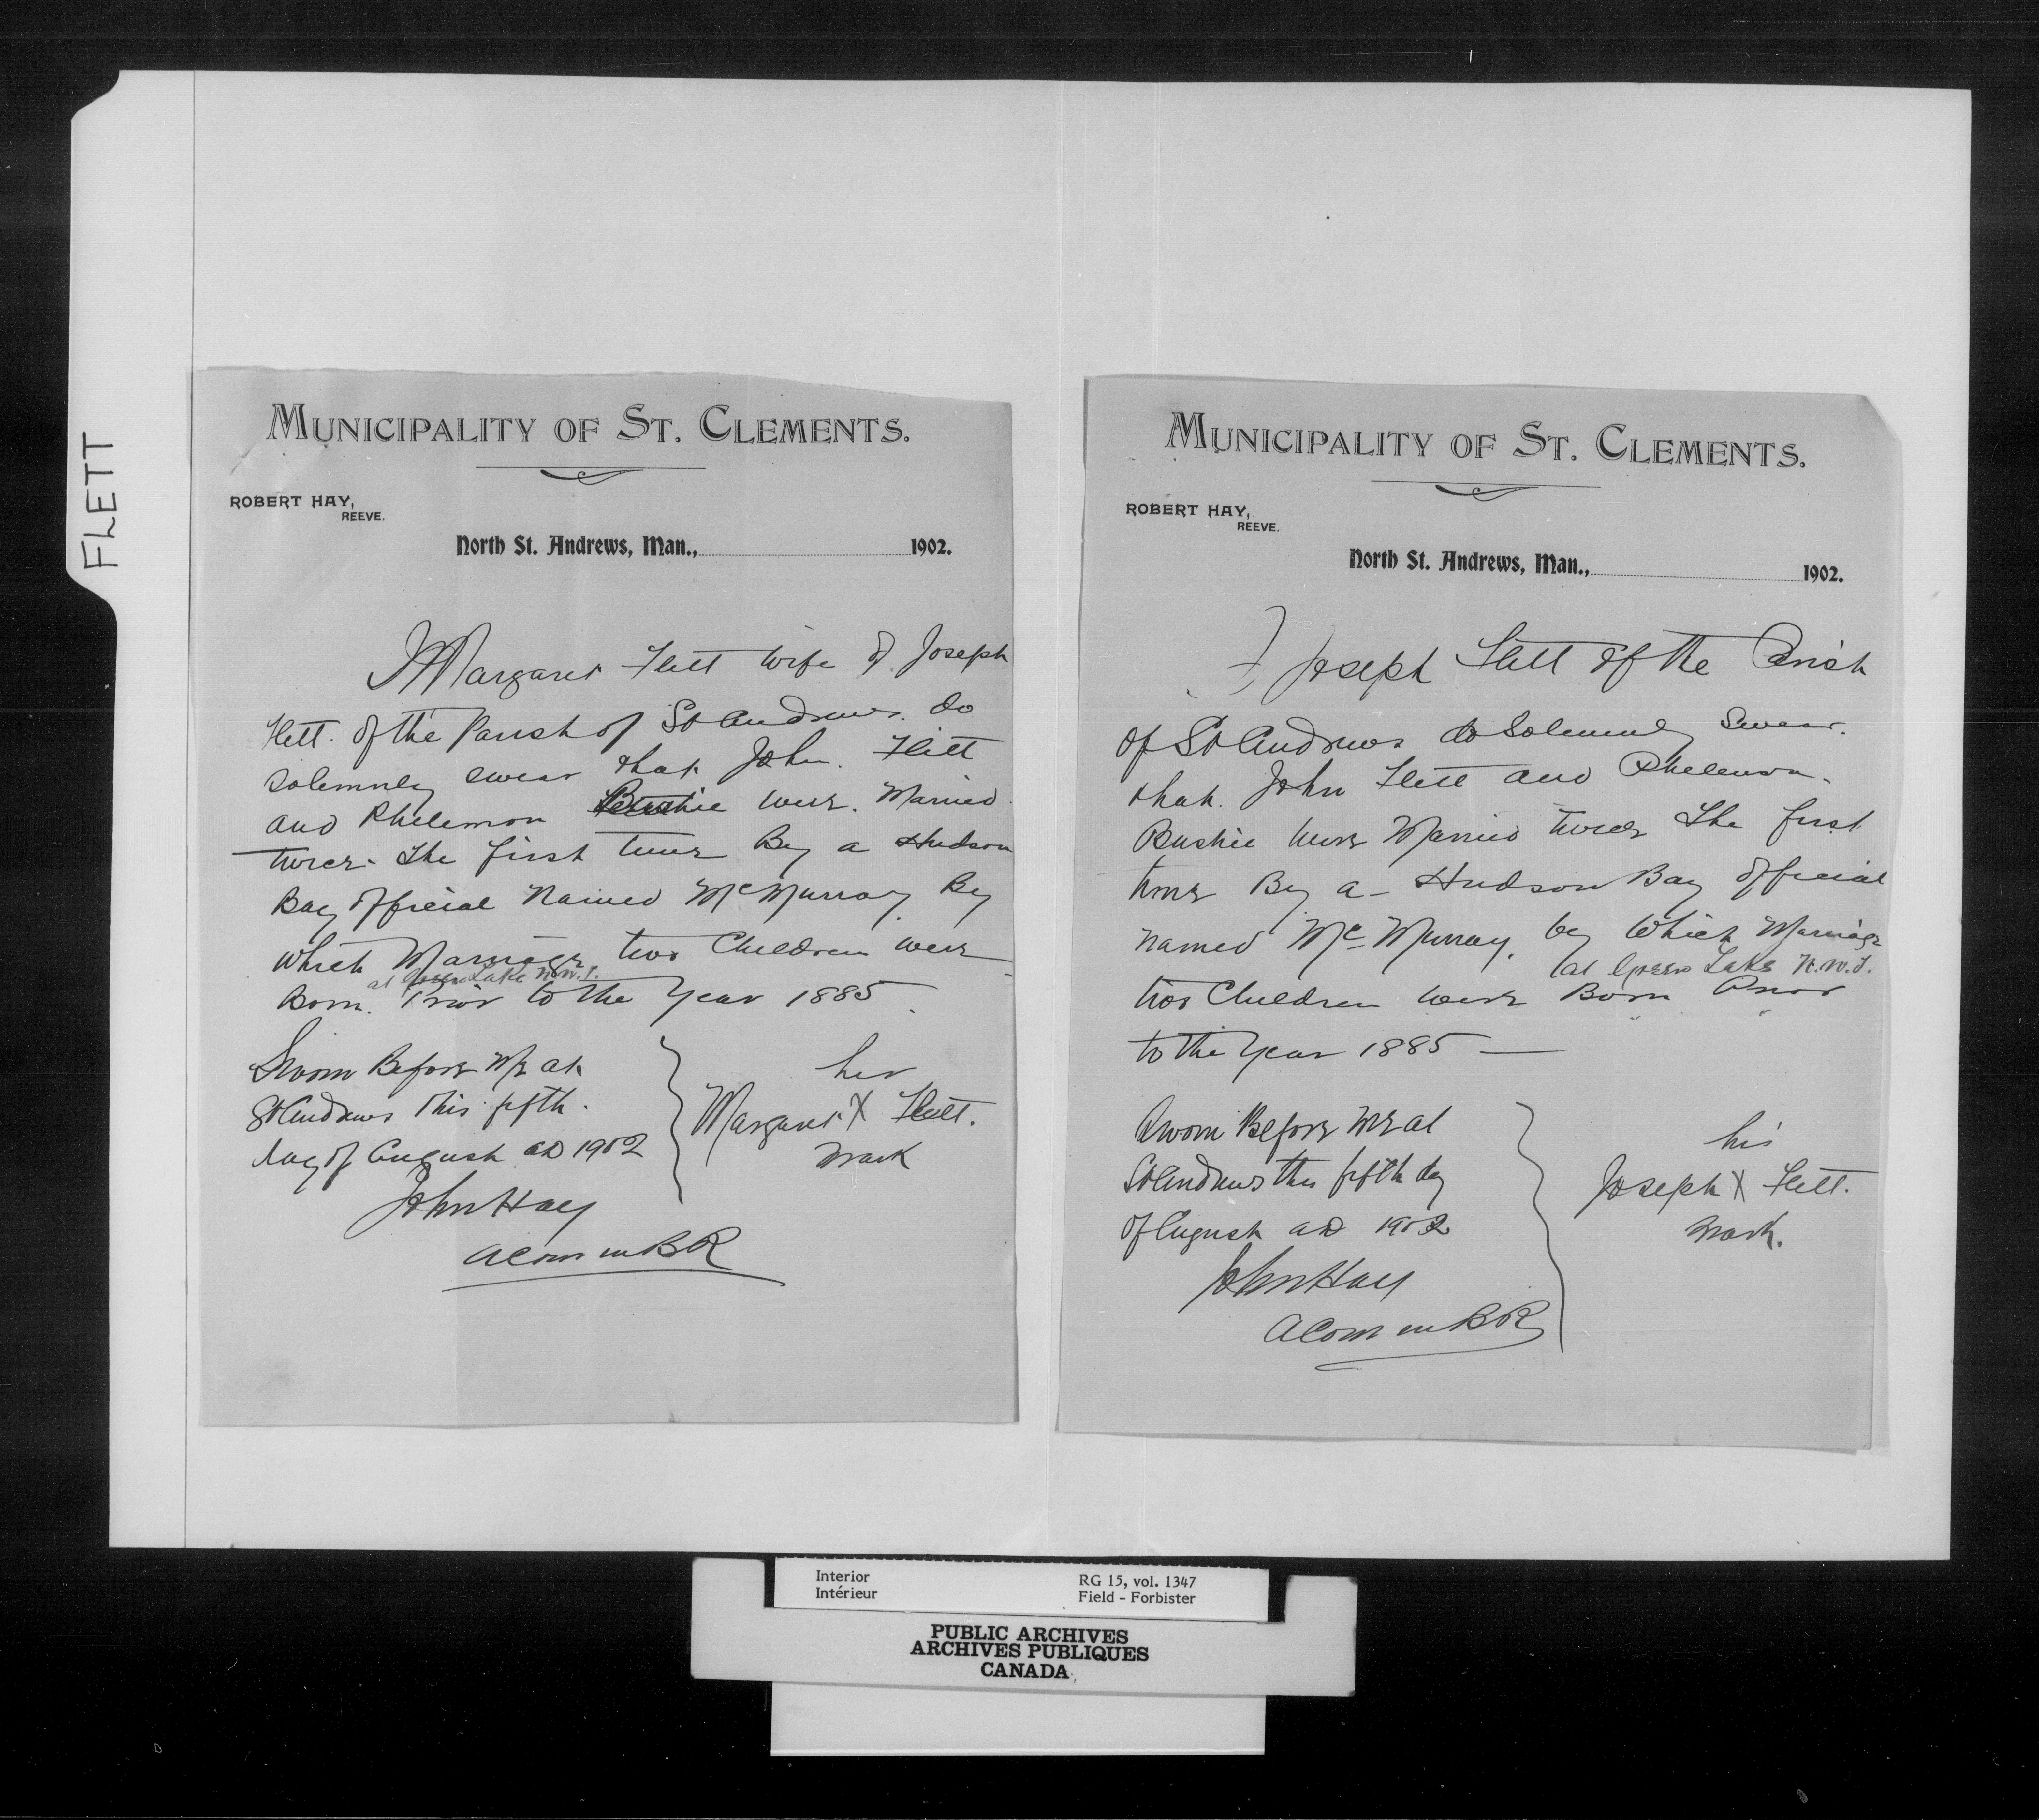 FLETT
MUNICIPALITY OF ST. CLEMENTS.
ROBERT HAY,
REEVE.
North St. Andrews, Man., 1902.
I Margaret Flett wife of Joseph
Flett. of the Parish of St Andrews. do
Solemnly swear that John. Flett
and Philemon Bushie were. Married
twice. The first time By a Hudson
Bay Official Named McMurray. By
which Marriage two Children were
at Green Lake N.W.T.
Born. Prior to the Year 1885.
Sworn Before Me at
St Andrews this fifth.
day of August AD 1902
her
Margaret X Flett.
mark
John Hay
A Com in BR
MUNICIPALITY OF ST. CLEMENTS.
ROBERT HAY,
REEVE.
North St. Andrews, Man., 1902.
I Joseph Flett of the Parish
of St Andrews do Solemnly Swear.
that. John Flett and
Bushie were Married twice The first
time By a Hudson Bay Official
named Mc Murray. by Which Marriage
at Green Lake N.W.T.
two Children were Born Prior
to the Year 1885 —
Sworn Before me at
St Andrews this fifth day
of August AD 1902
his
Joseph X Flett.
mark.
John Hay
A Com in BR
Interior
Intérieur
RG 15, vol. 1347
Field - Forbister
PUBLIC ARCHIVES
ARCHIVES PUBLIQUES
CANADA